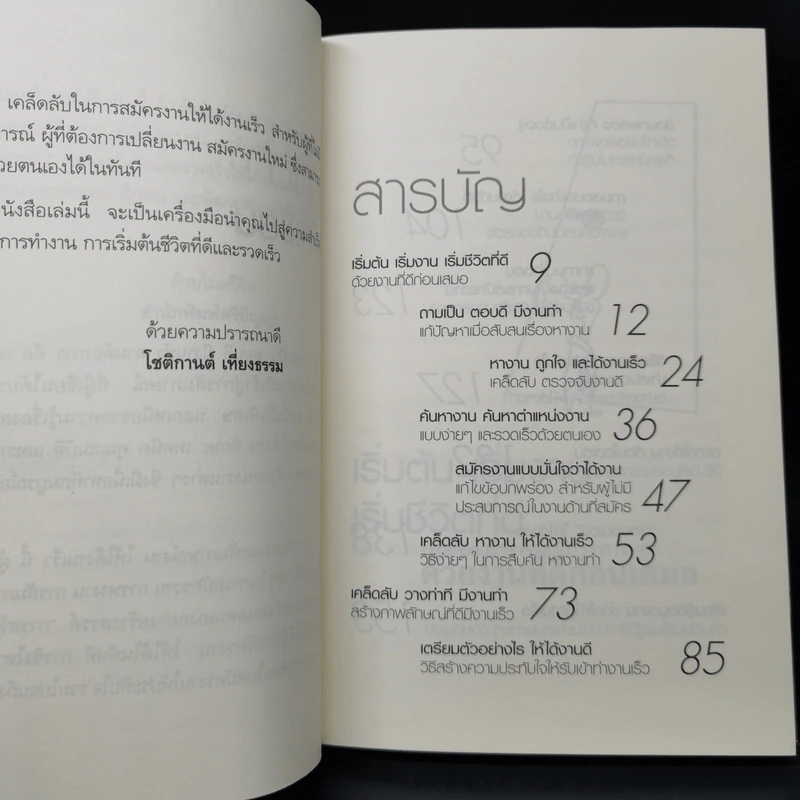 เคล็ดลับในการสมัครงานให้ได้งานเร็ว สำหรับผู้ที่
ารณ์ ผู้ที่ต้องการเปลี่ยนงาน สมัครงานใหม่
วยตนเองได้ในทันที
นังสือเล่มนี้ จะเป็นเครื่องมือนำคุณไปสู่ความสำเร็
การทำงาน การเริ่มต้นชีวิตที่ดีและรวดเร็ว
ด้วยความปรารถนาดี
โชติกานต์ เที่ยงธรรม
สารบัญ
เริ่มต้น เริ่มงาน เริ่มชีวิตที่ดี 9
ด้วยงานที่ดีก่อนเสมอ
ถามเป็น ตอบดี มีงานทำ 12
แก้ปัญหาเมื่อสับสนเรื่องหางาน
หางาน ถูกใจ และได้งานเร็ว 24
เคล็ดลับ ตรวจจับงานดี
ค้นหางาน ค้นหาตำแหน่งงาน 36
แบบง่ายๆ และรวดเร็วด้วยตนเอง
สมัครงานแบบมั่นใจว่าได้งาน 47
แก้ไขข้อบกพร่อง สำหรับผู้ไม่มี
ประสบการณ์ในงานด้านที่สมัคร
เคล็ดลับ หางาน ให้ได้งานเร็ว 53
วิธีง่ายๆ ในการสืบค้น หางานทำ
เคล็ดลับ วางท่าที มีงานทำ 73
สร้างภาพลักษณ์ที่ดีมีงานเร็ว
เตรียมตัวอย่างไร ให้ได้งานดี 85
วิธีสร้างความประทับใจให้รับเข้าทำงานเร็ว